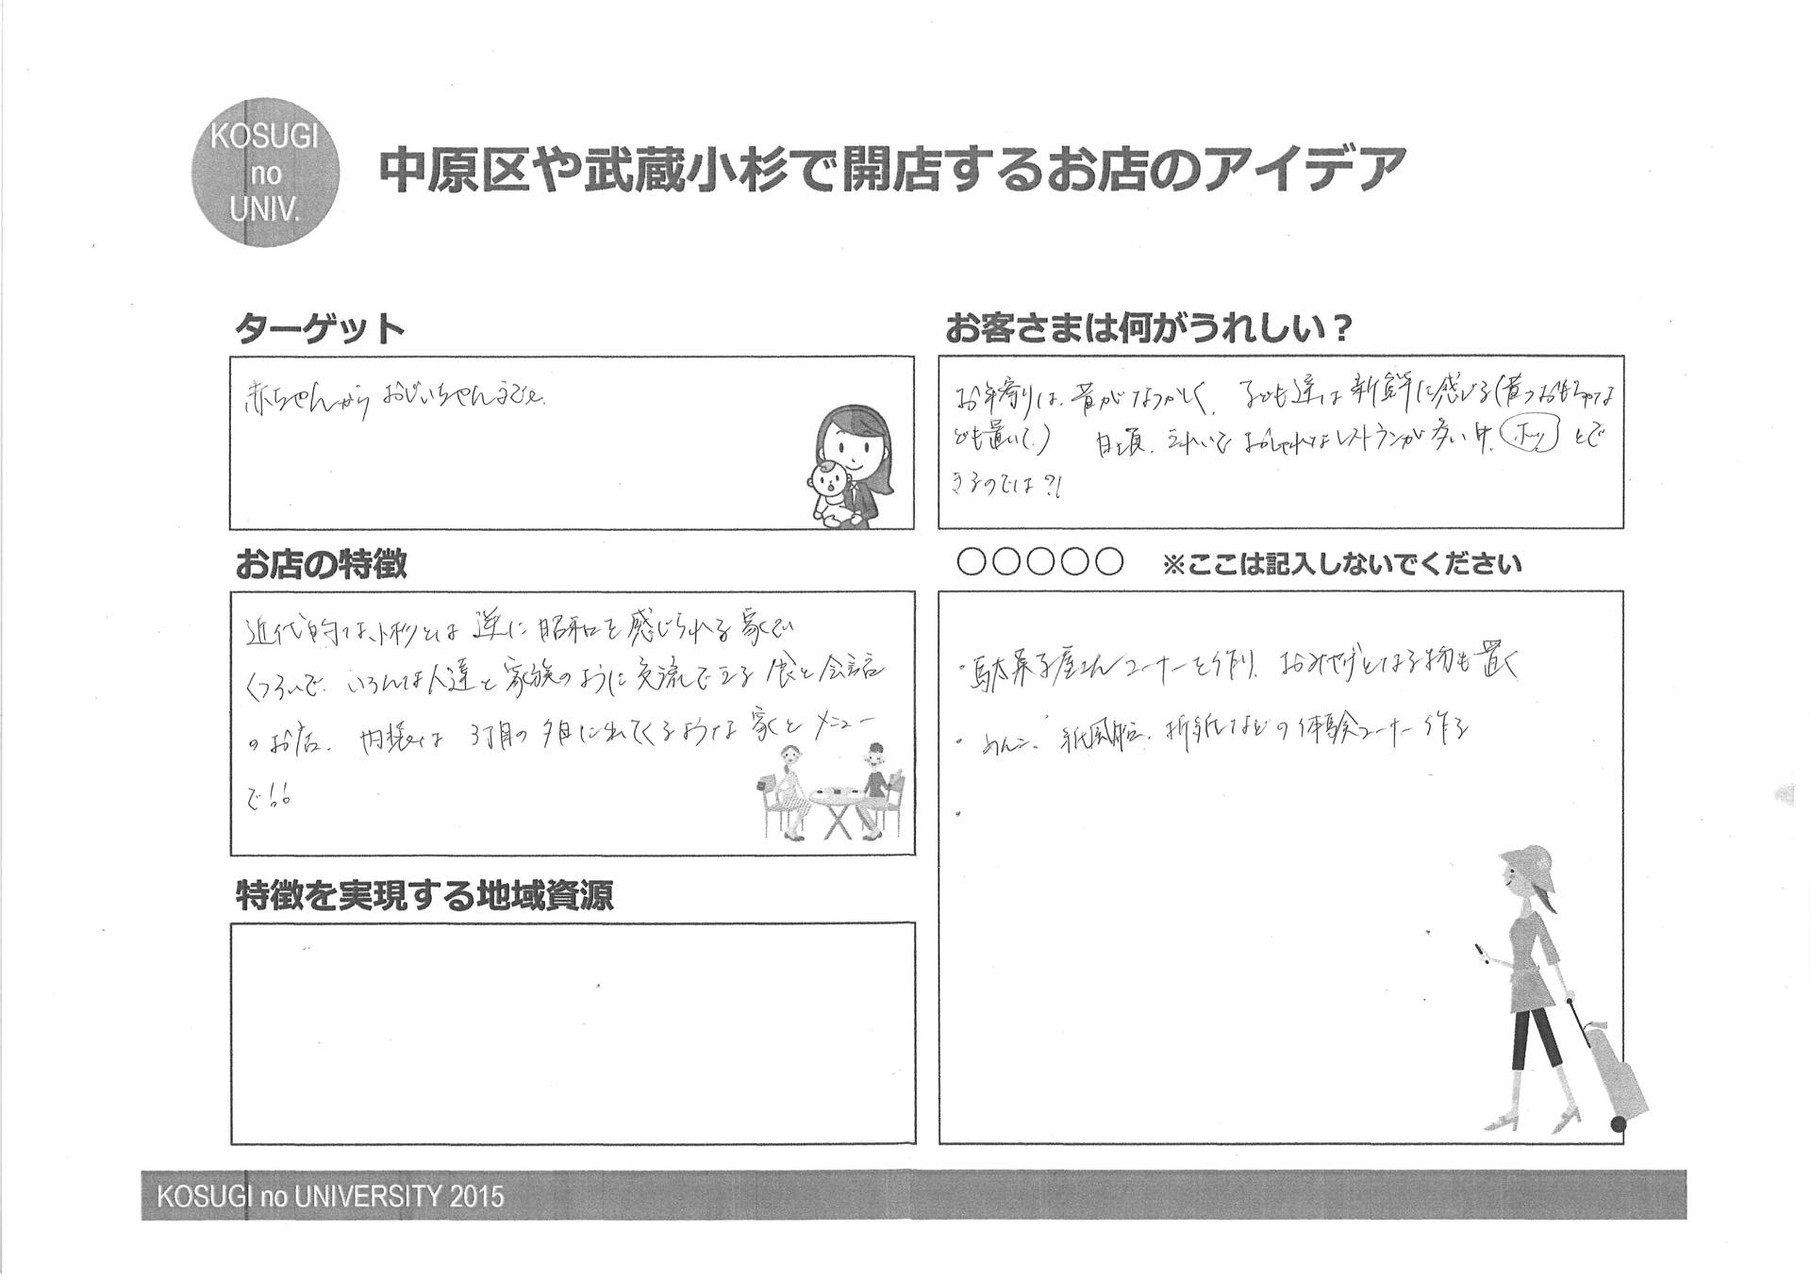 KOSUGI
no
UNIV.
中原区や武蔵小杉で開店するお店のアイデア
ターゲット
赤ちゃんから おじいちゃんまで。
お客さまは何がうれしい？
お年寄りは、昔がなつかしく、子ども達は新鮮に感じる(昔のおもちゃな
ども置いて。) 日頃、きれいで おしゃれなレストランが多い中、ホッ とで
きるのでは?!
お店の特徴
近代的な小杉とは 逆に 昭和を感じられる 家で
くつろいで、いろんな人達と 家族のように交流できる 食と会話
のお店。内装は 3丁目の夕日に出てくるような 家と メニュー
で!!
○○○○○ ※ここは記入しないでください
・駄菓子屋さんコーナーを作り、おみやげとなる物も置く
・めんこ、紙風船、折紙などの体験コーナー作る
・
特徴を実現する地域資源
KOSUGI no UNIVERSITY 2015